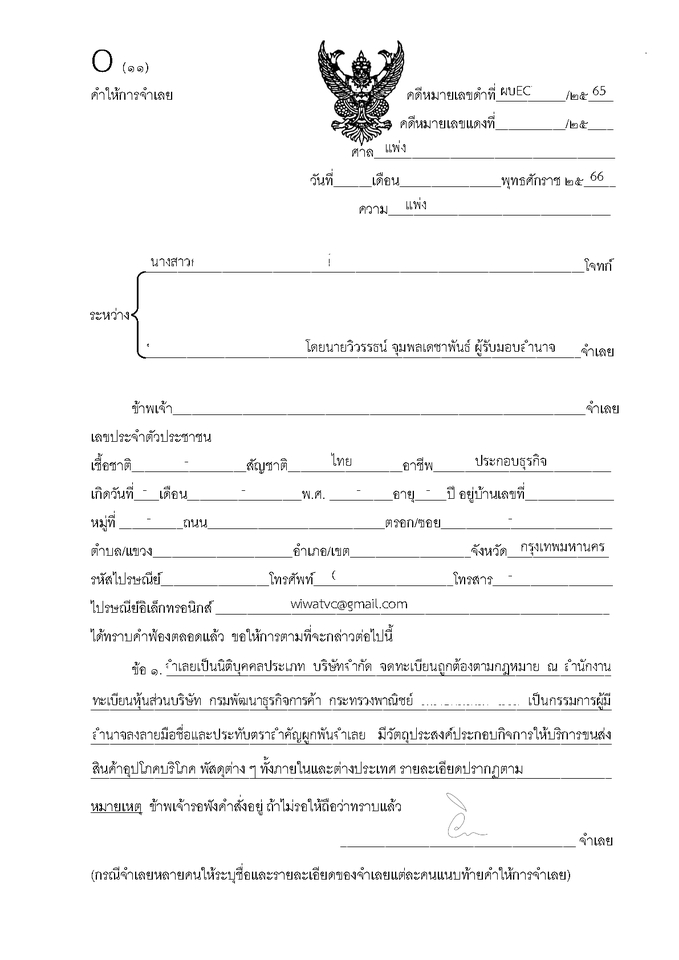 O (๑๑)
คำให้การจำเลย
คดีหมายเลขดำที่ ผบEC /๒๕ 65
คดีหมายเลขแดงที่ /๒๕
ศาล แพ่ง
วันที่ เดือน พุทธศักราช ๒๕ 66
ความ แพ่ง
นางสาว โจทก์
ระหว่าง
โดยนายวิวรรธน์ จุมพลเดชาพันธ์ ผู้รับมอบอำนาจ จำเลย
ข้าพเจ้า จำเลย
เลขประจำตัวประชาชน
เชื้อชาติ - สัญชาติ ไทย อาชีพ ประกอบธุรกิจ
เกิดวันที่ - เดือน - พ.ศ. - อายุ - ปี อยู่บ้านเลขที่
หมู่ที่ - ถนน ตรอก/ซอย -
ตำบล/แขวง อำเภอ/เขต จังหวัด กรุงเทพมหานคร
รหัสไปรษณีย์ โทรศัพท์ ( โทรสาร -
ไปรษณีย์อิเล็กทรอนิกส์ wiwatvc@gmail.com
ได้ทราบคำฟ้องตลอดแล้ว ขอให้การตามที่จะกล่าวต่อไปนี้
ข้อ ๑. จำเลยเป็นนิติบุคคลประเภท บริษัทจำกัด จดทะเบียนถูกต้องตามกฎหมาย ณ สำนักงาน
ทะเบียนหุ้นส่วนบริษัท กรมพัฒนาธุรกิจการค้า กระทรวงพาณิชย์ เป็นกรรมการผู้มี
อำนาจลงลายมือชื่อและประทับตราสำคัญผูกพันจำเลย มีวัตถุประสงค์ประกอบกิจการให้บริการขนส่ง
สินค้าอุปโภคบริโภค พัสดุต่าง ๆ ทั้งภายในและต่างประเทศ รายละเอียดปรากฏตาม
หมายเหตุ ข้าพเจ้ารอฟังคำสั่งอยู่ ถ้าไม่รอให้ถือว่าทราบแล้ว
จำเลย
(กรณีจำเลยหลายคนให้ระบุชื่อและรายละเอียดของจำเลยแต่ละคนแนบท้ายคำให้การจำเลย)